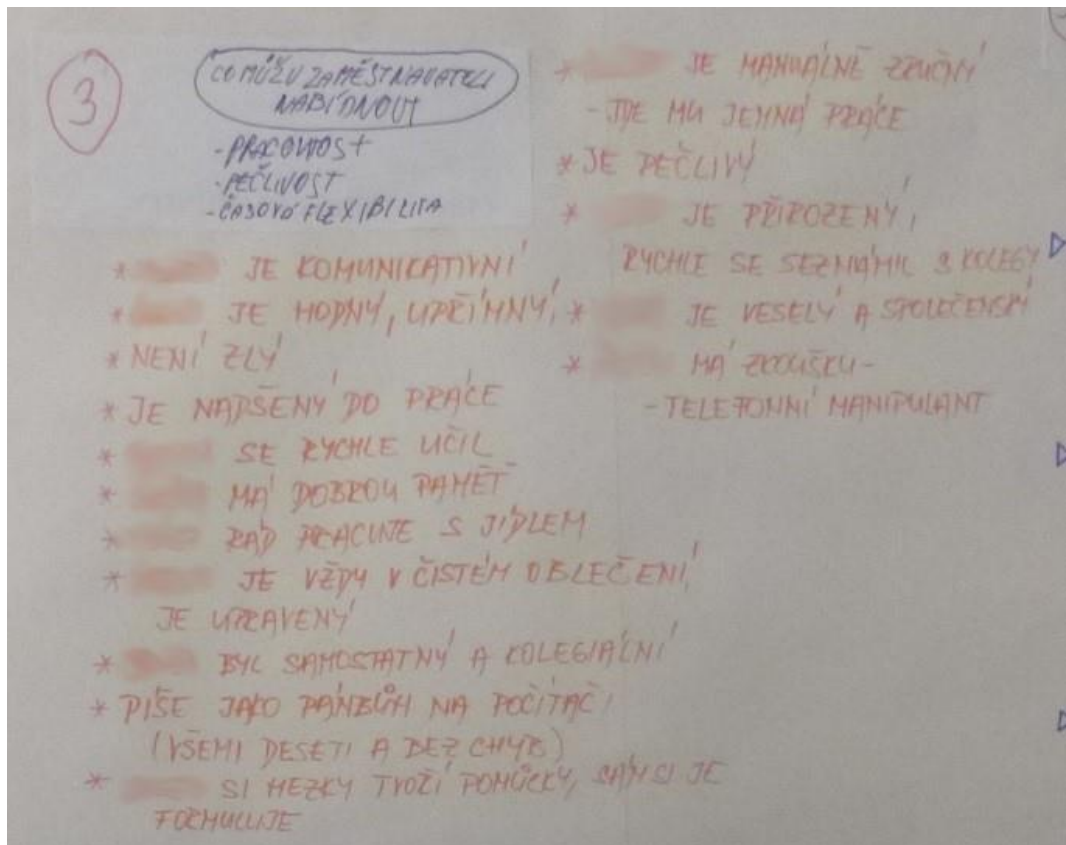 3
CO MŮŽU ZAMĚSTNAVATELI
NABÍDNOUT
- PRACOVITOST
- PEČLIVOST
- ČASOVÁ FLEXIBILITA
* JE KOMUNIKATIVNÍ
* JE HODNÝ, UPŘÍMNÝ,
* NENÍ ZLÝ
* JE NADŠENÝ DO PRÁCE
* SE RYCHLE UČIL
* MÁ DOBROU PAMĚŤ
* RÁD PRACUJE S JÍDLEM
* JE VŽDY V ČISTÉM OBLEČENÍ,
JE UPRAVENÝ
* BYL SAMOSTATNÝ A KOLEGIÁLNÍ
* PÍŠE JAKO PÁNBŮH NA POČÍTAČI
(VŠEMI DESETI A BEZ CHYB)
* SI HEZKY TVOŘÍ POMŮCKY, SÁM SI JE
FORMULUJE
* JE MANUÁLNĚ ZRUČNÝ
- JDE MU JEMNÁ PRÁCE
* JE PEČLIVÝ
* JE PŘIROZENÝ,
RYCHLE SE SEZNÁMIL S KOLEGY
* JE VESELÝ A SPOLEČENSKÝ
* MÁ ZKOUŠKU -
- TELEFONNÍ MANIPULANT